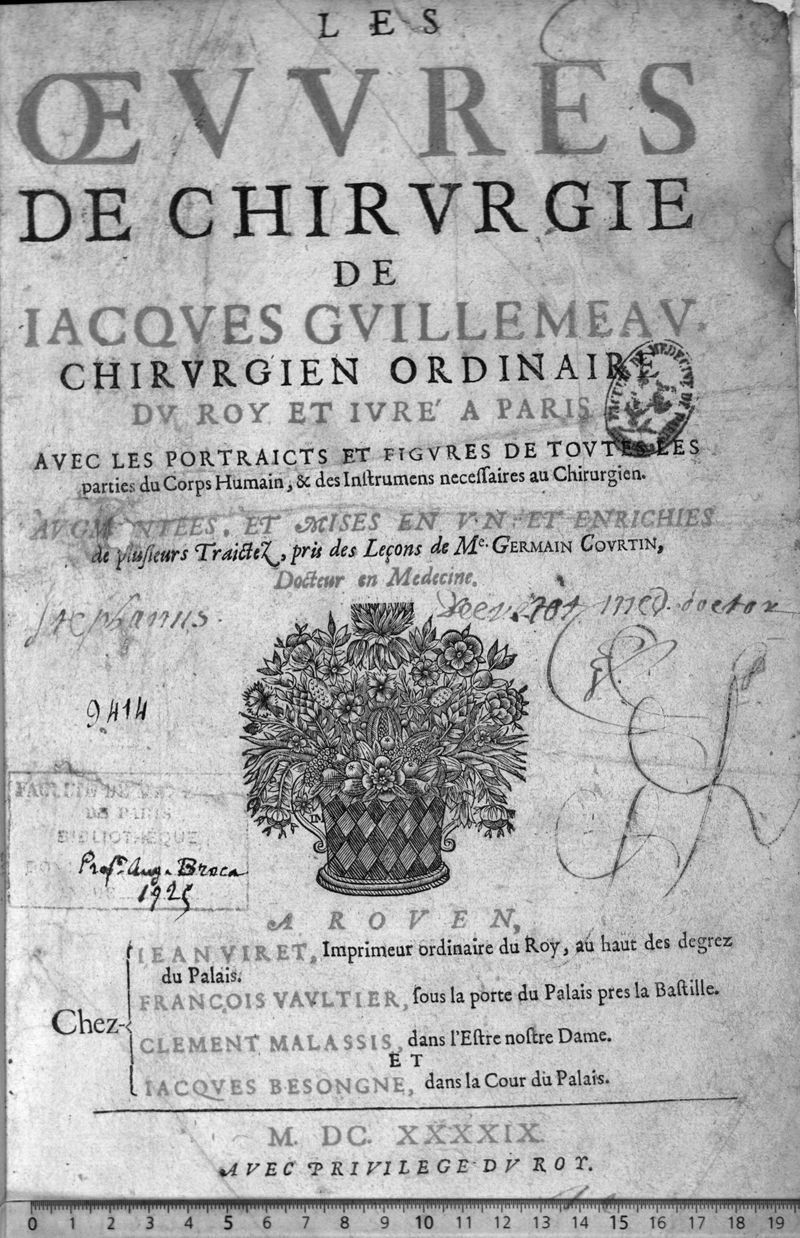 LES
ŒVVRES
DE CHIRVRGIE
DE
IACQVES GVILLEMEAV.
CHIRVRGIEN ORDINAIRE
DV ROY ET IVRE' A PARIS
AVEC LES PORTRAICTS ET FIGVRES DE TOVTES LES
parties du Corps Humain, & des Inſtrumens neceſſaires au Chirurgien.
ET MISES EN VN: ET ENRICHIES
de pluſieurs Traictez, pris des Leçons de Me. GERMAIN COVRTIN,
Docteur en Medecine.
Stephanus med. doctor
9414
FACULTE DE
DE PARIS
BIBLIOTHÈQUE
Profr. Aug. Broca
1925
A ROVEN,
IEAN VIRET, Imprimeur ordinaire du Roy, au haut des degrez
du Palais.
FRANÇOIS VAVLTIER, ſous la porte du Palais pres la Baſtille.
Chez
CLEMENT MALASSIS, dans l'Eſtre noſtre Dame.
ET
IACQVES BESONGNE, dans la Cour du Palais.
M. DC. XXXXIX.
AVEC PRIVILEGE DV ROY.
0 1 2 3 4 5 6 7 8 9 10 11 12 13 14 15 16 17 18 19